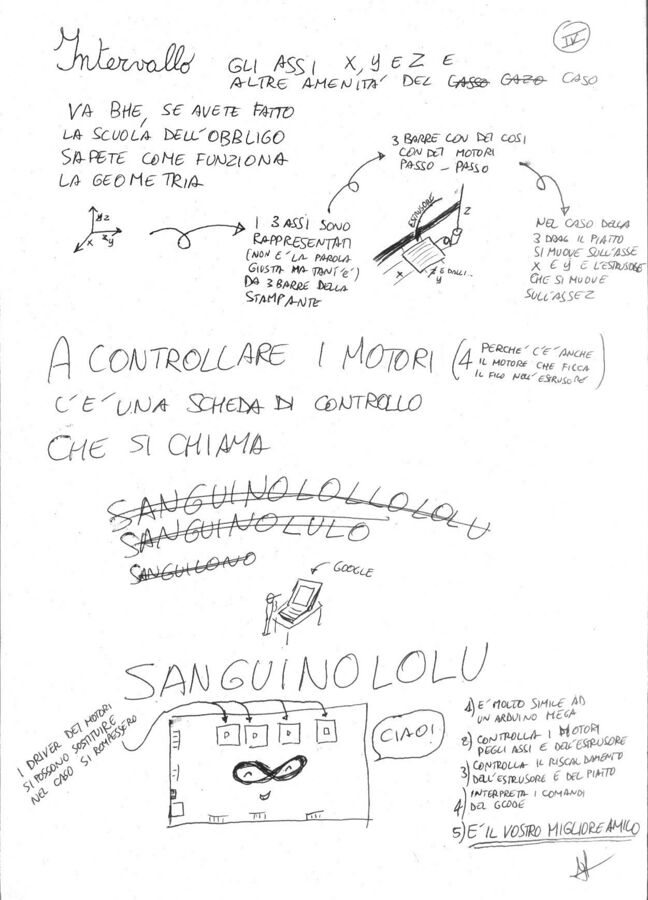 IV
Intervallo GLI ASSI X, Y E Z E
ALTRE AMENITA' DEL GASSO GAZO CASO
VA BHE, SE AVETE FATTO
LA SCUOLA DELL'OBBLIGO
SAPETE COME FUNZIONA
LA GEOMETRIA
3 BARRE CON DEI COSI
CON DEI MOTORI
PASSO - PASSO
ESTRUSORE
Z
X
Y
Z E DALLI..
X
I 3 ASSI SONO
RAPPRESENTATI
(NON E' LA PAROLA
GIUSTA MA TANT'E')
DA 3 BARRE DELLA
STAMPANTE
NEL CASO DELLA
3 DRAG IL PIATTO
SI MUOVE SULL'ASSE
X E Y E L'ESTRUSORE
CHE SI MUOVE
SULL'ASSE Z
A CONTROLLARE I MOTORI (4 PERCHE' C'E' ANCHE
IL MOTORE CHE FICCA
IL FILO NELL'ESTRUSORE)
C'E' UNA SCHEDA DI CONTROLLO
CHE SI CHIAMA
SANGUINOLOLLOLOLU
SANGUINOLULO
SANGUILONO
GOOGLE
SANGUINOLOLU
I DRIVER DEI MOTORI
SI POSSONO SOSTITUIRE
NEL CASO SI ROMPESSERO
CIAO!
1) E' MOLTO SIMILE AD
UN ARDUINO MEGA
2) CONTROLLA I MOTORI
DEGLI ASSI E DELL'ESTRUSORE
3) CONTROLLA IL RISCALDAMENTO
DELL'ESTRUSORE E DEL PIATTO
4) INTERPRETA I COMANDI
DEL GCODE
5) E' IL VOSTRO MIGLIORE AMICO